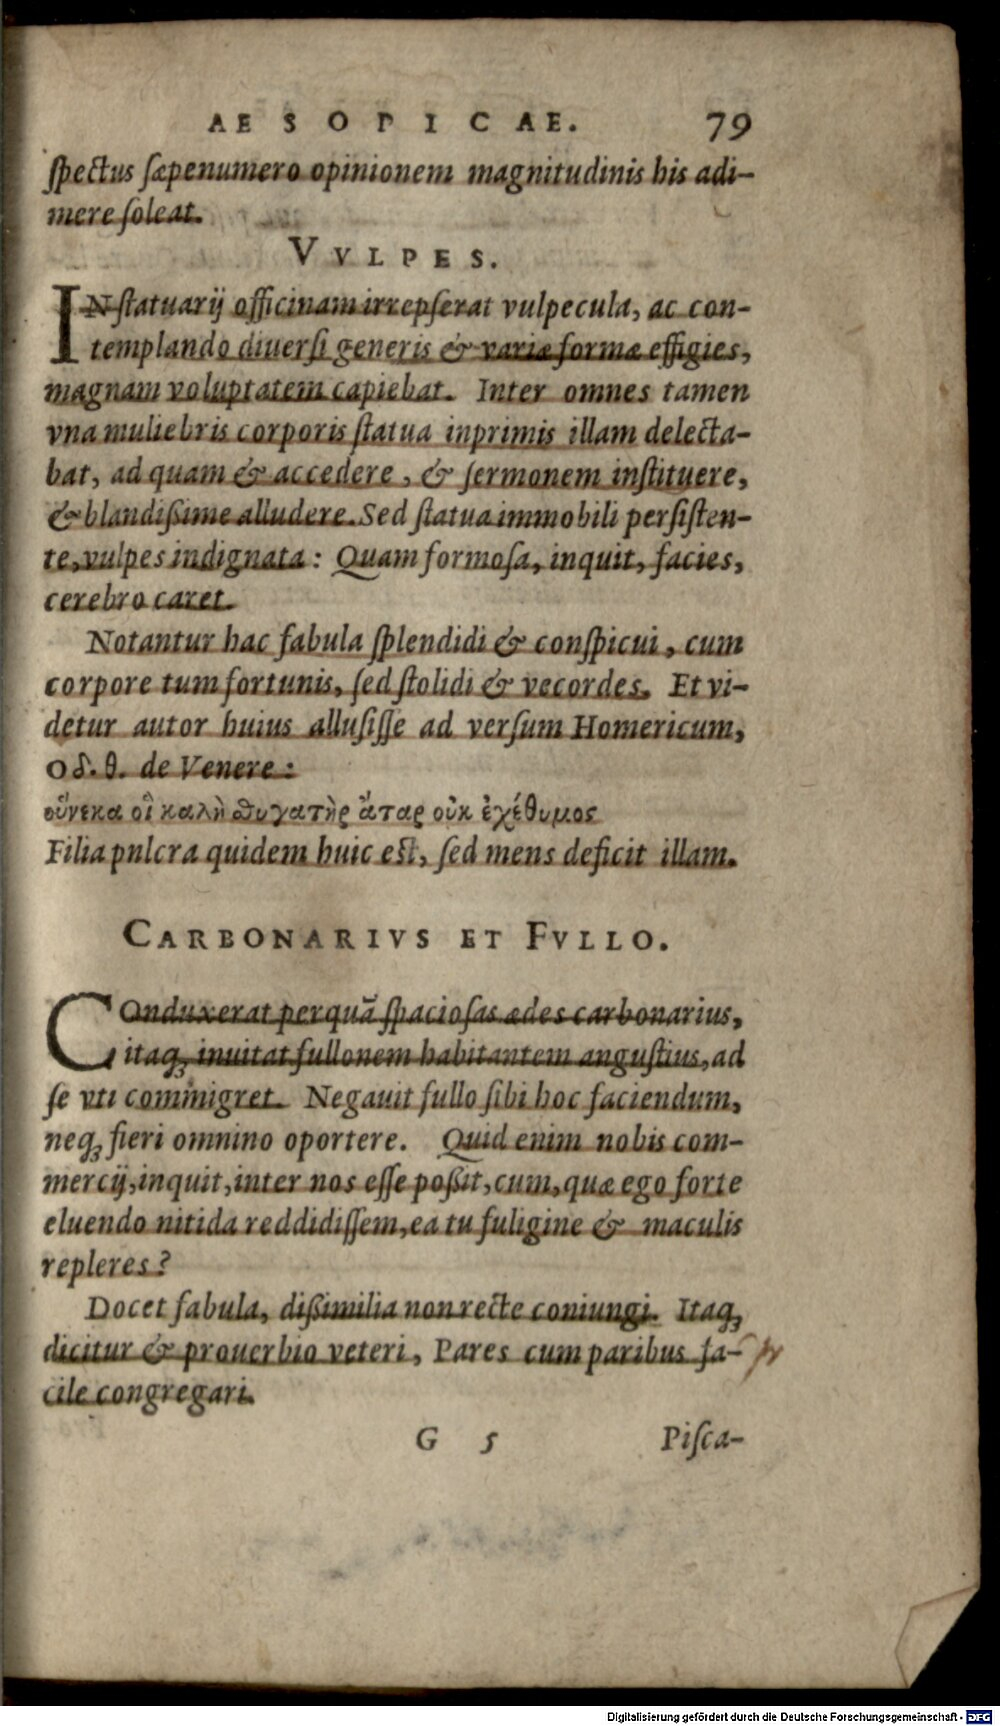 AESOPICAE. 79
ſpectus ſæpenumero opinionem magnitudinis his adi-
mere ſoleat.
VVLPES.
IN ſtatuarij officinam irrepſerat vulpecula, ac con-
templando diuerſi generis & variæ formæ effigies,
magnam voluptatem capiebat. Inter omnes tamen
vna muliebris corporis ſtatua inprimis illam delecta-
bat, ad quam & accedere, & ſermonem inſtituere,
& blandißime alludere. Sed ſtatua immobili perſiſten-
te, vulpes indignata: Quam formoſa, inquit, facies,
cerebro caret.
Notantur hac fabula ſplendidi & conſpicui, cum
corpore tum fortunis, ſed ſtolidi & vecordes. Et vi-
detur autor huius alluſiſſe ad verſum Homericum,
Οδ. θ. de Venere:
οὕνεκα οἱ καλὴ θυγατὴρ ἄταρ οὐκ ἐχέθυμος
Filia pulcra quidem huic est, ſed mens deficit illam.
CARBONARIVS ET FVLLO.
COnduxerat perquā ſpacioſas ædes carbonarius,
itaq; inuitat fullonem habitantem anguſtius, ad
ſe vti commigret. Negauit fullo ſibi hoc faciendum,
neq; fieri omnino oportere. Quid enim nobis com-
mercij, inquit, inter nos eſſe poßit, cum, quæ ego forte
eluendo nitida reddidiſſem, ea tu fuligine & maculis
repleres?
Docet fabula, dißimilia non recte coniungi. Itaq;
dicitur & prouerbio veteri, Pares cum paribus fa-
cile congregari.
G 5 Piſca-
Digitalisierung gefördert durch die Deutsche Forschungsgemeinschaft - DFG